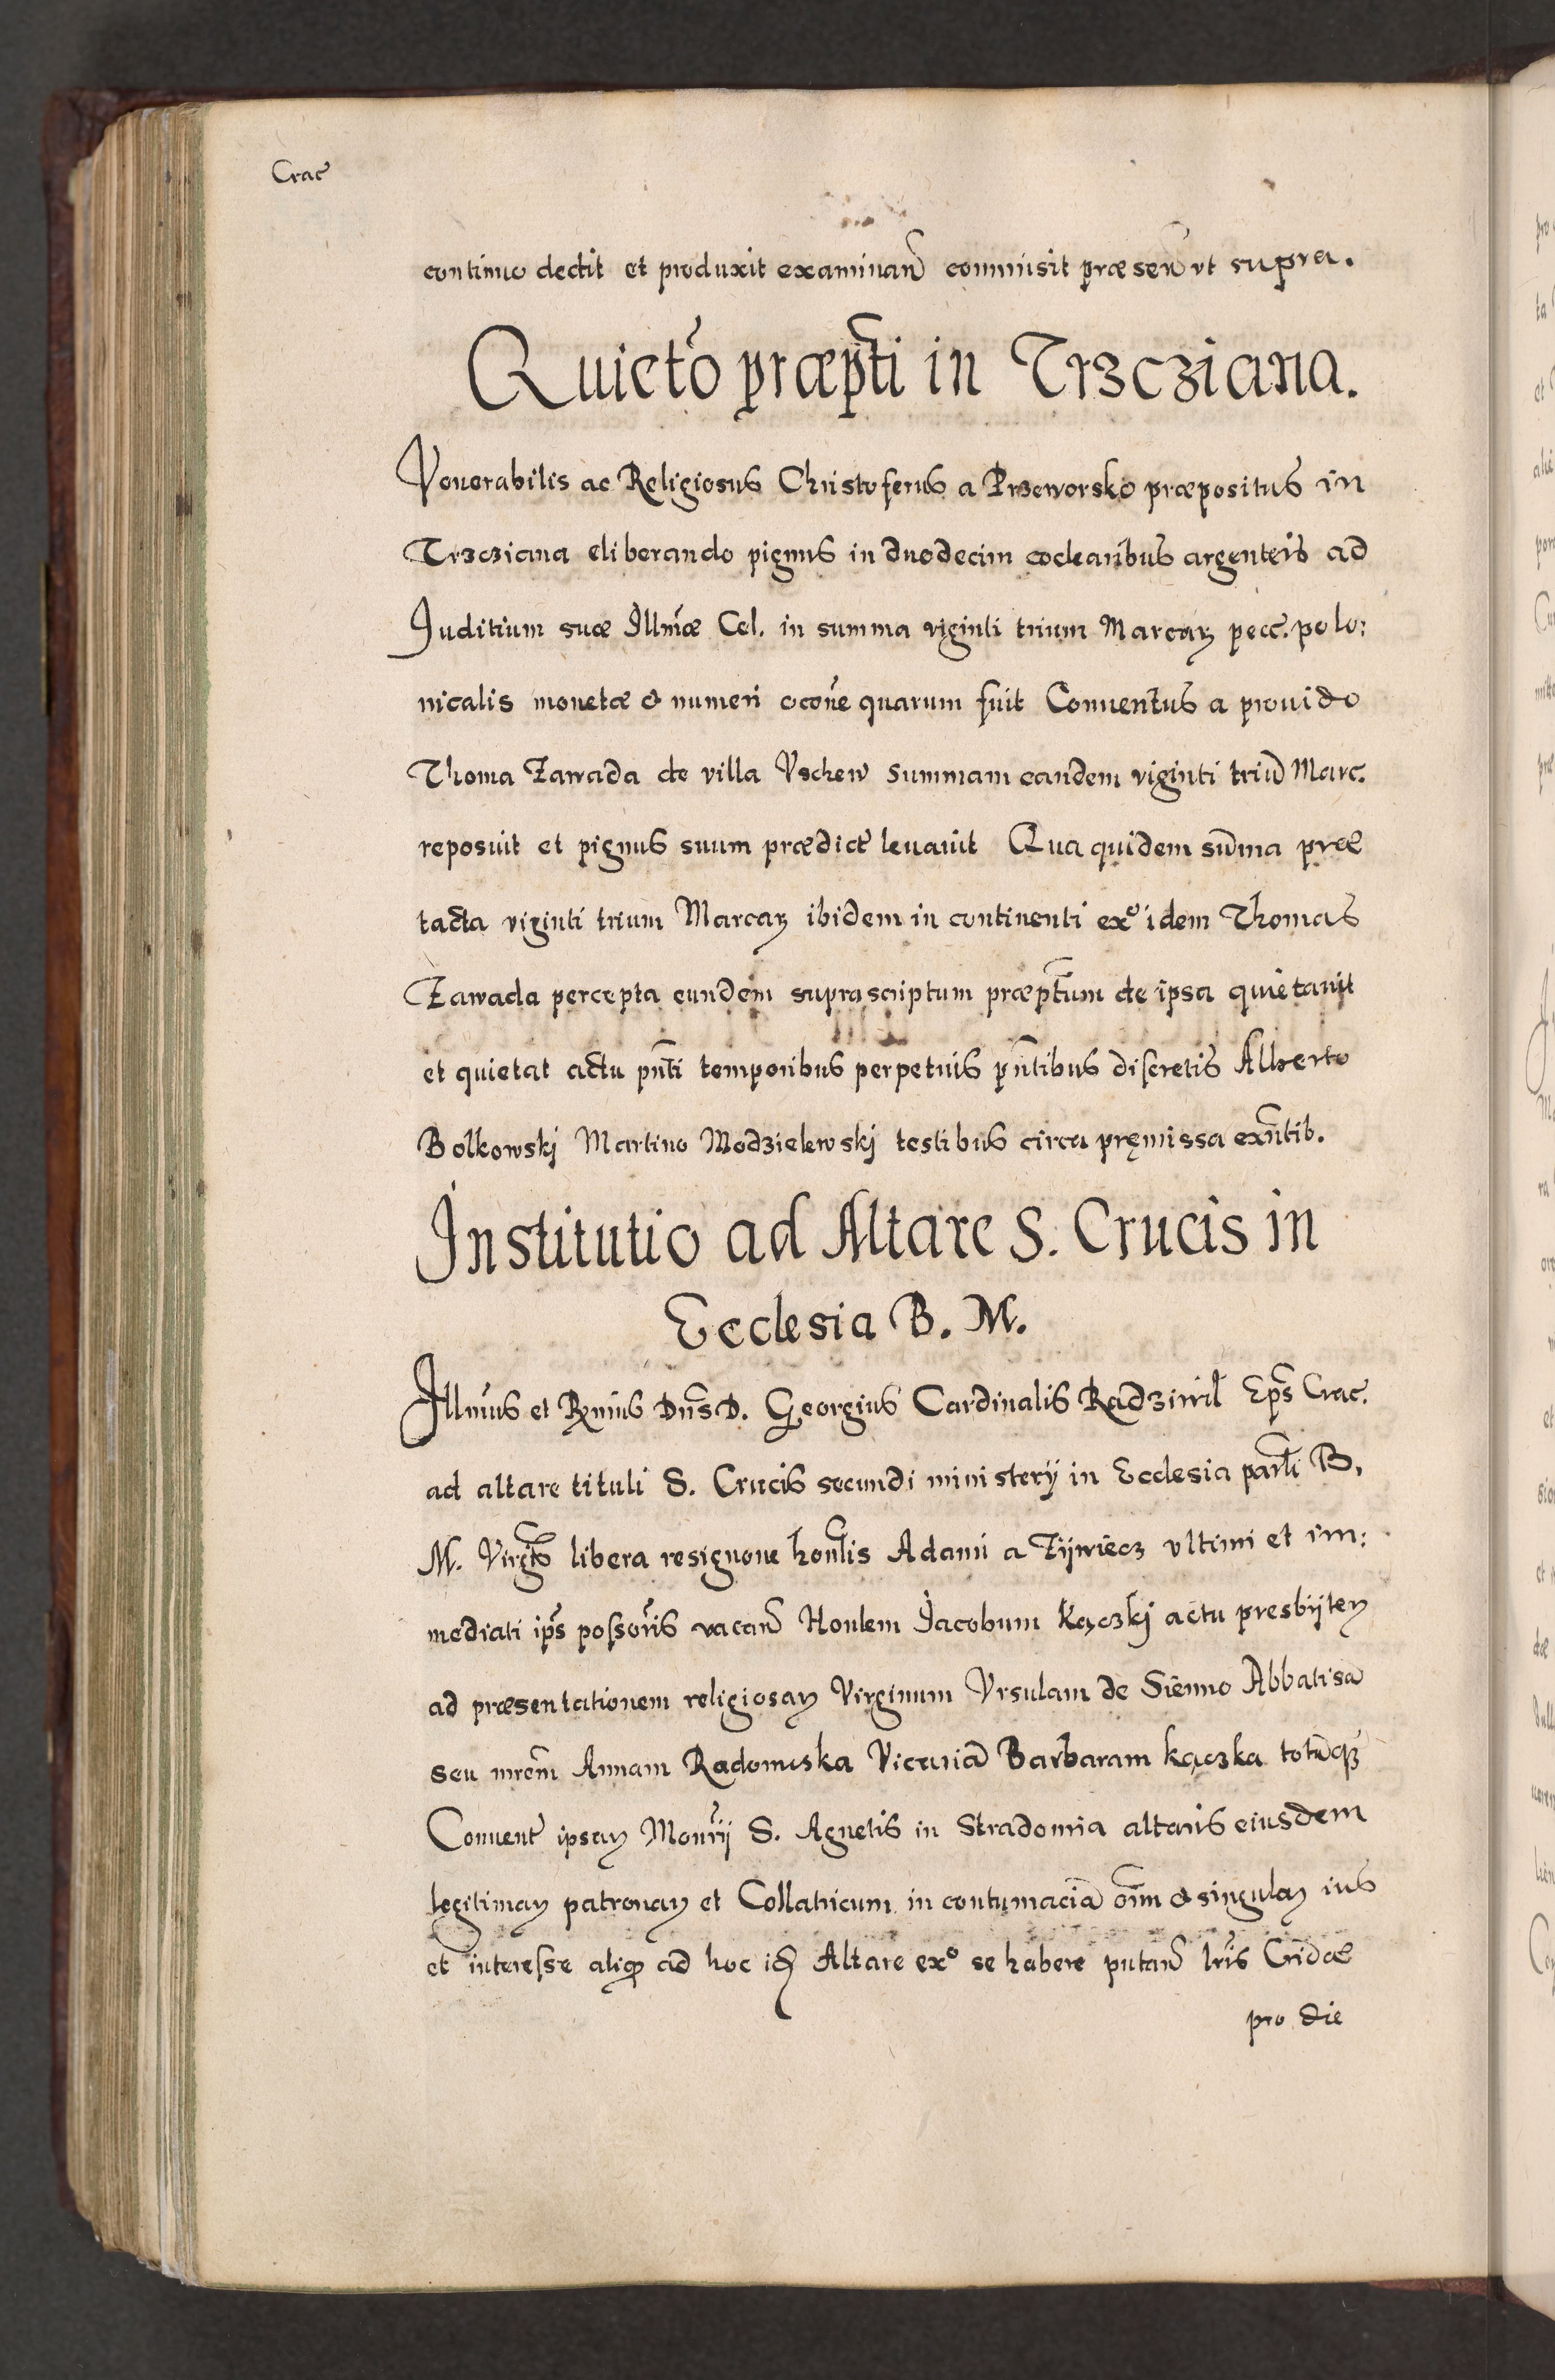 Crac̃
continuo dedit et produxit examinañ commisit præseñ vt supra.
Quietõ præp̃ti in Trzcziana.
Venerabilis ac Religiosus Christoferus a Przeworsko præpositus in
Trzcziana eliberando pignus in duodecim coclearibus argenteis ad
Juditium suæ Illm̃æ Cel. in summa viginti trium Marcaꝝ pecc. polo:
nicalis monetæ & numeri ocoñe quarum fuit Conuentus a prouido
Thoma Zawada de villa Vschew summam eandem viginti triũ Marc.
reposuit et pignus suum prædict̃ leuauit Qua quidem sũma præ
tacta viginti trium Marcaꝝ ibidem in continenti exº idem Thomas
Zawada percepta eundem suprascriptum præp̃tum de ipsa quietauit
et quietat actu pñti temporibus perpetuis pñtibus discretis Alberto
Bolkowski Martino Modzielewskj testibus circa pręmissa exñtib.
Institutio ad Altare S. Crucis in
Ecclesia B. M.
Illm̃us et Rm̃us Dñs D. Georgius Cardinalis Radziwił Ep̃s Crac.
ad altare tituli S. Crucis secundi ministerij in Ecclesia parłi B.
M. Virg̃ libera resignone honłis Adami a Zijwiecz vltimi et im:
mediati ip̃s possor̃is vacañ Honlem Jacobum Kączkj actu presbijteꝝ
ad præsentationem religiosaꝝ Virginum Vrsulam de Sienno Abbatisã
seu mrẽm Annam Radomska Vicariã Barbaram Kączka totũqꝫ
Conuent̃ ipsaꝝ Monr̃ij S. Agnetis in Stradomia altaris eiusdem
legitimaꝝ patronaꝝ et Collatricum in contumaciã oĩm & singulaꝝ ius
et interesse aliqđ ad hoc iđ Altare exº se habere putañ lr̃is Cridæ
pro die